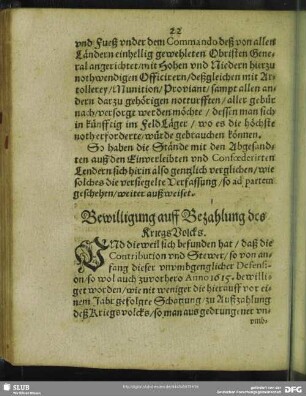 22
vnd Fueß vnder dem Commando deß von allen
Ländern einhellig gewehleten Obristen Gene-
ral angerichtet / mit Hohen vnd Niedern hierzu
nothwendigen Officirern / deßgleichen mit Ar-
tollerey / Munition / Proviant / sampt allen an-
dern darzu gehörigen notturfften / aller gebür
nach / versorgt werden möchte / dessen man sich
in künfftig im Feld Läger / wo es die höchste
noth erforderte / würde gebrauchen können.
So haben die Stände mit den Abgesand-
ten auß den Einverleibten vnd Confœderirten
Lendern sich hirin also gentzlich verglichen / wie
solches die versiegelte Verfassung / so ad partem
geschehen / weiter außweiset.
Bewilligung auff Bezahlung des
Kriegs Volcks.
VNd dieweil sich befunden hat / daß die
Contribution vnd Stewer / so von an-
fang dieser vnvmbgenglicher Defensi-
on / so wol auch zuvorhero Anno 1615. bewilli-
get worden / wie nit weniger die hierauff vor ei-
nem Jahr gefolgte Schatzung / zu Außzahlung
deß Kriegsvolcks / so man auß gedrungener vn-
vmb-
SLUB
Wir führen Wissen.
gefördert von der
Deutschen Forschungsgemeinschaft
DFG